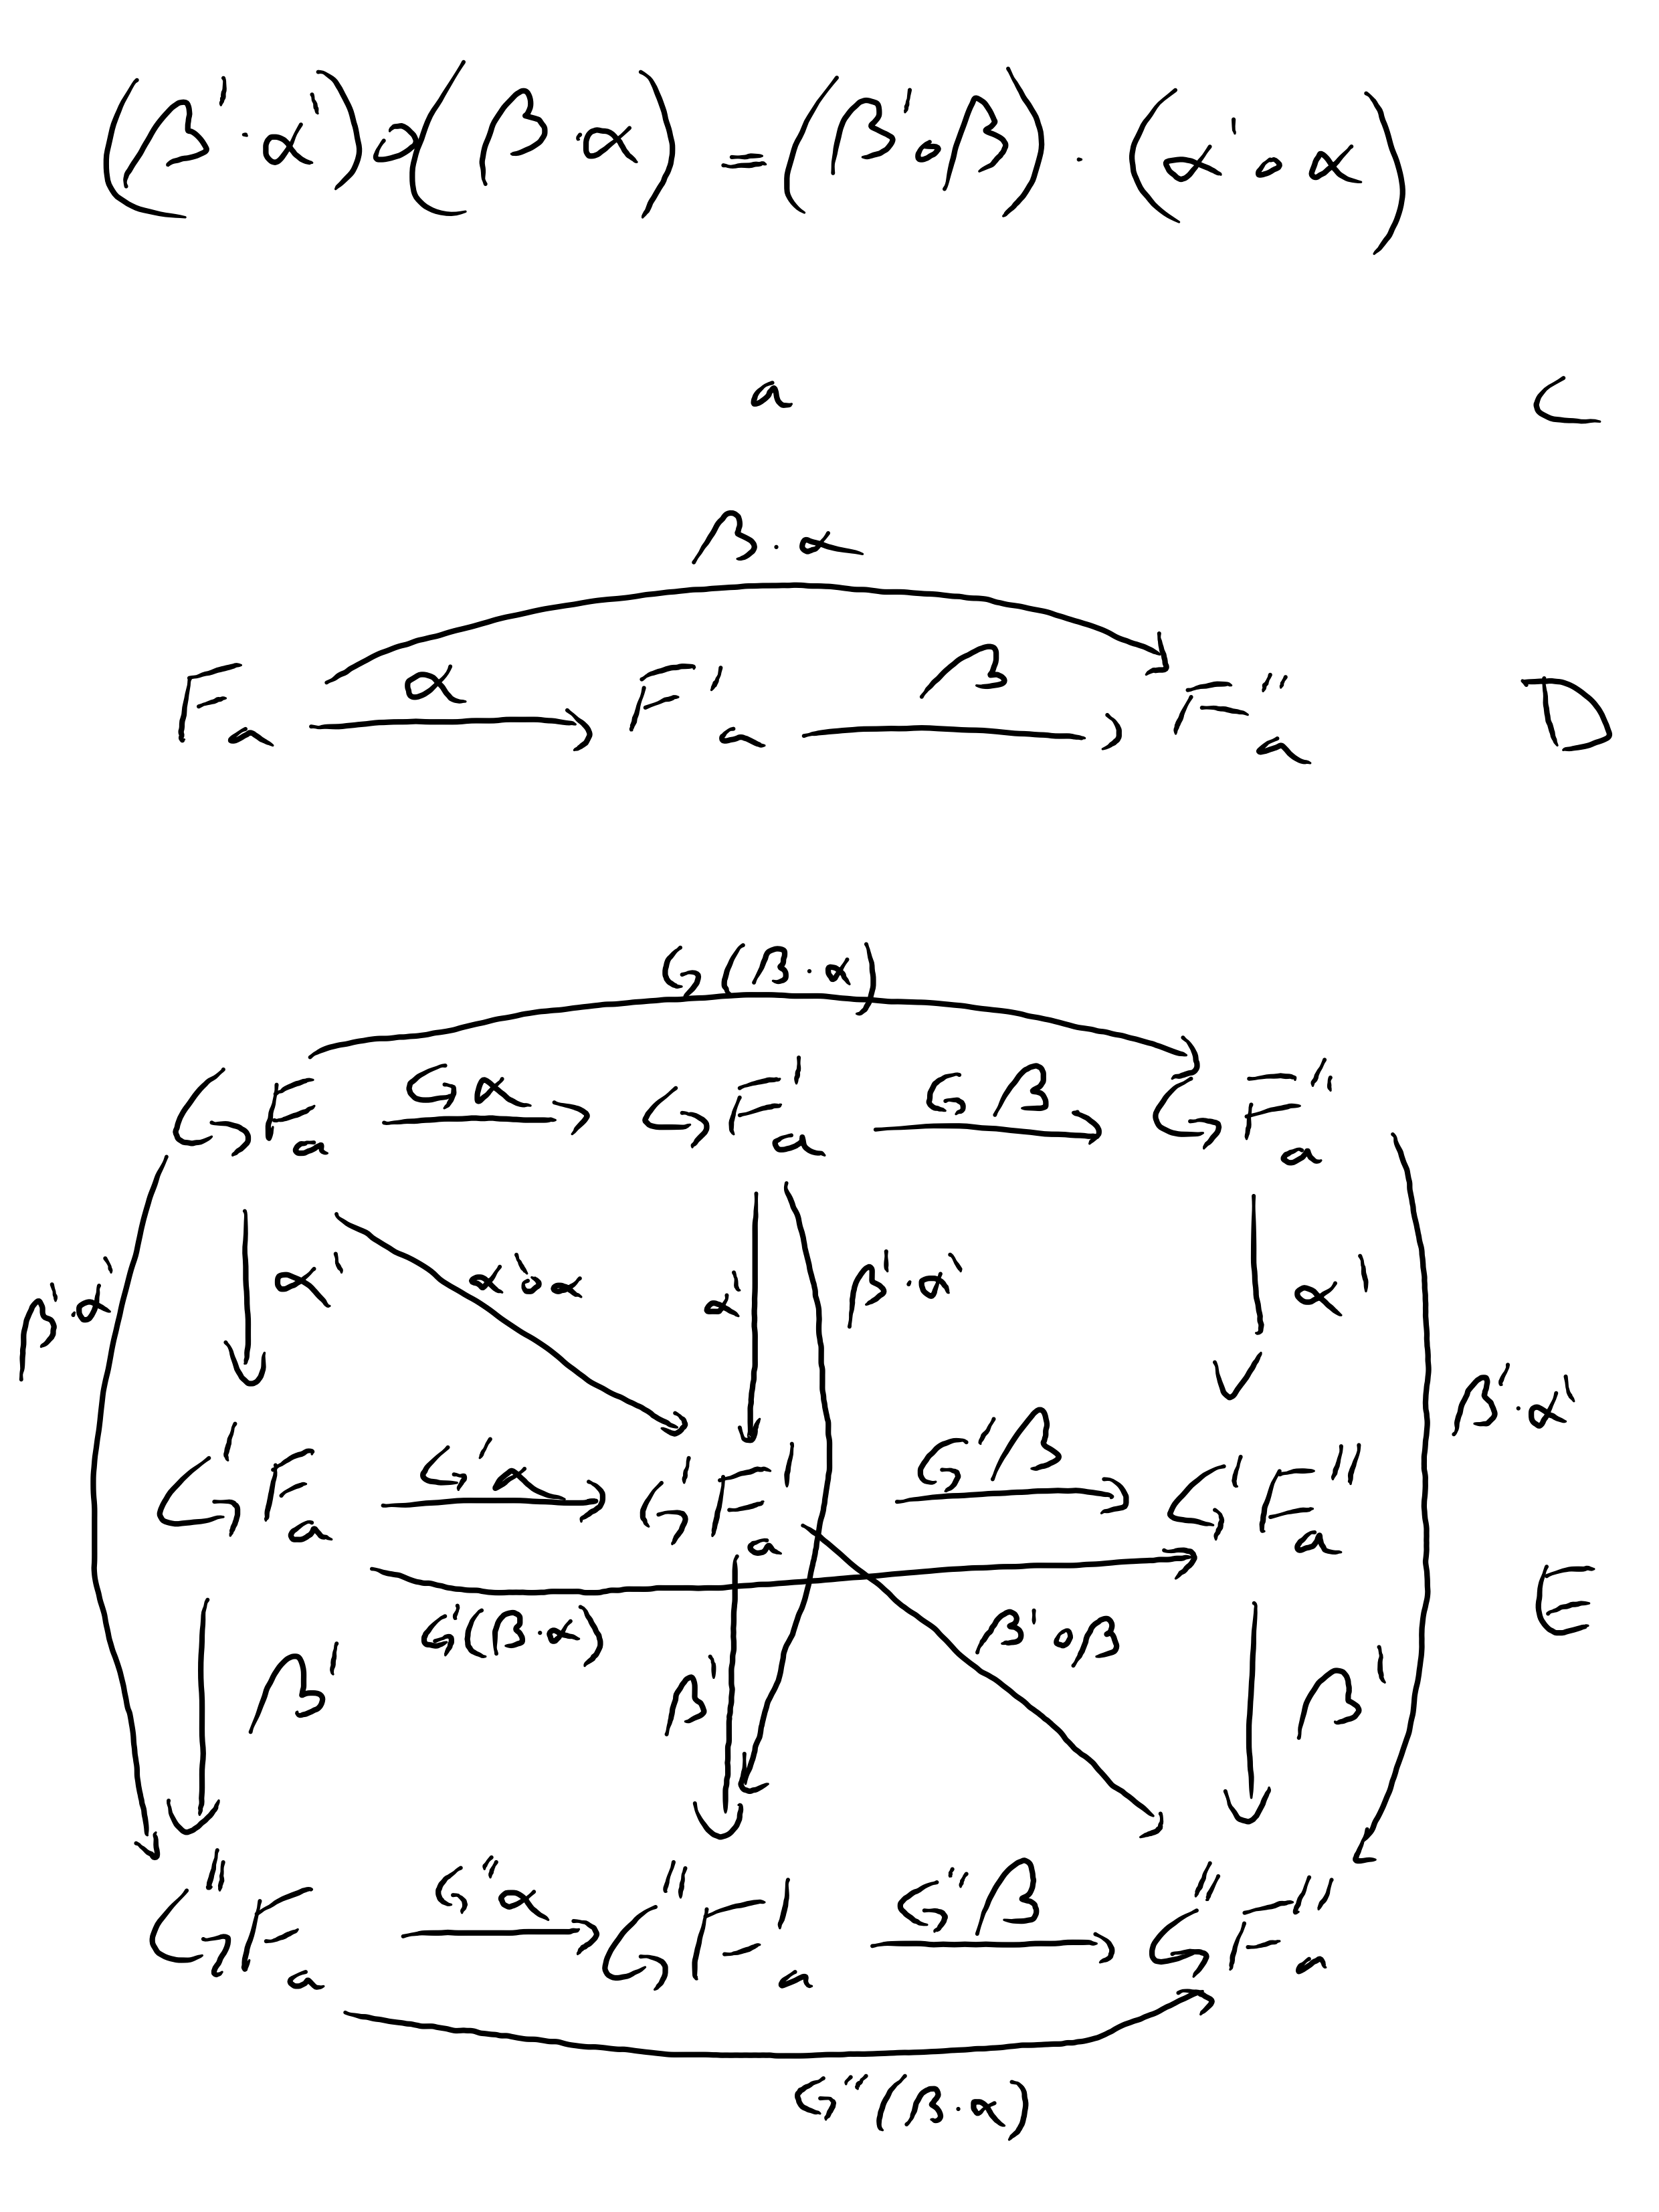 (β' · α') ∘ (β · α) = (β' ∘ β) · (α' ∘ α)
a C
β · α
Fa α F'a β F''a D
G(β · α)
GFa Gα GF'a Gβ GF''a
β'·α' α' α'∘α α' β'·α' α' β'·α'
G'Fa G'α G'F'a G'β G'F''a
G'(β·α) β'∘β E
β' β' β'
G''Fa G''α G''F'a G''β G''F''a
G''(β·α)